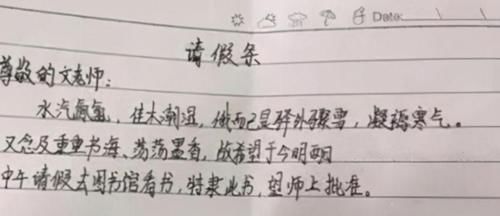 Date:
请假条
尊敬的文老师:
水汽氤氲,佳木潮湿,俄而已是驿外骤雪,凝稿寒气。
又念及重重书海、荡荡墨香,故希望于今明两日
中午请假去图书馆看书,特隶此书,望师上批准。